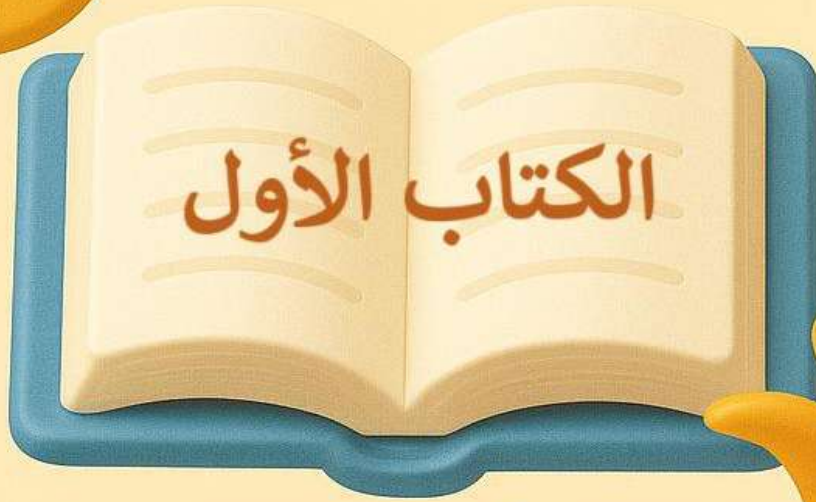 الكتاب الأول